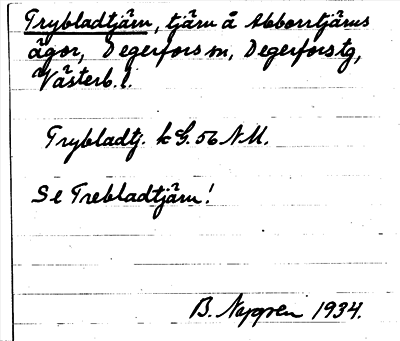 Trybladtjärn, tjärn å Abborrtjärns
ägor, Degerfors sn, Degerfors tg,
Västerb. l.
Trybladtj. k G. 56 NM.
Se Trebladtjärn!
B. 1934.